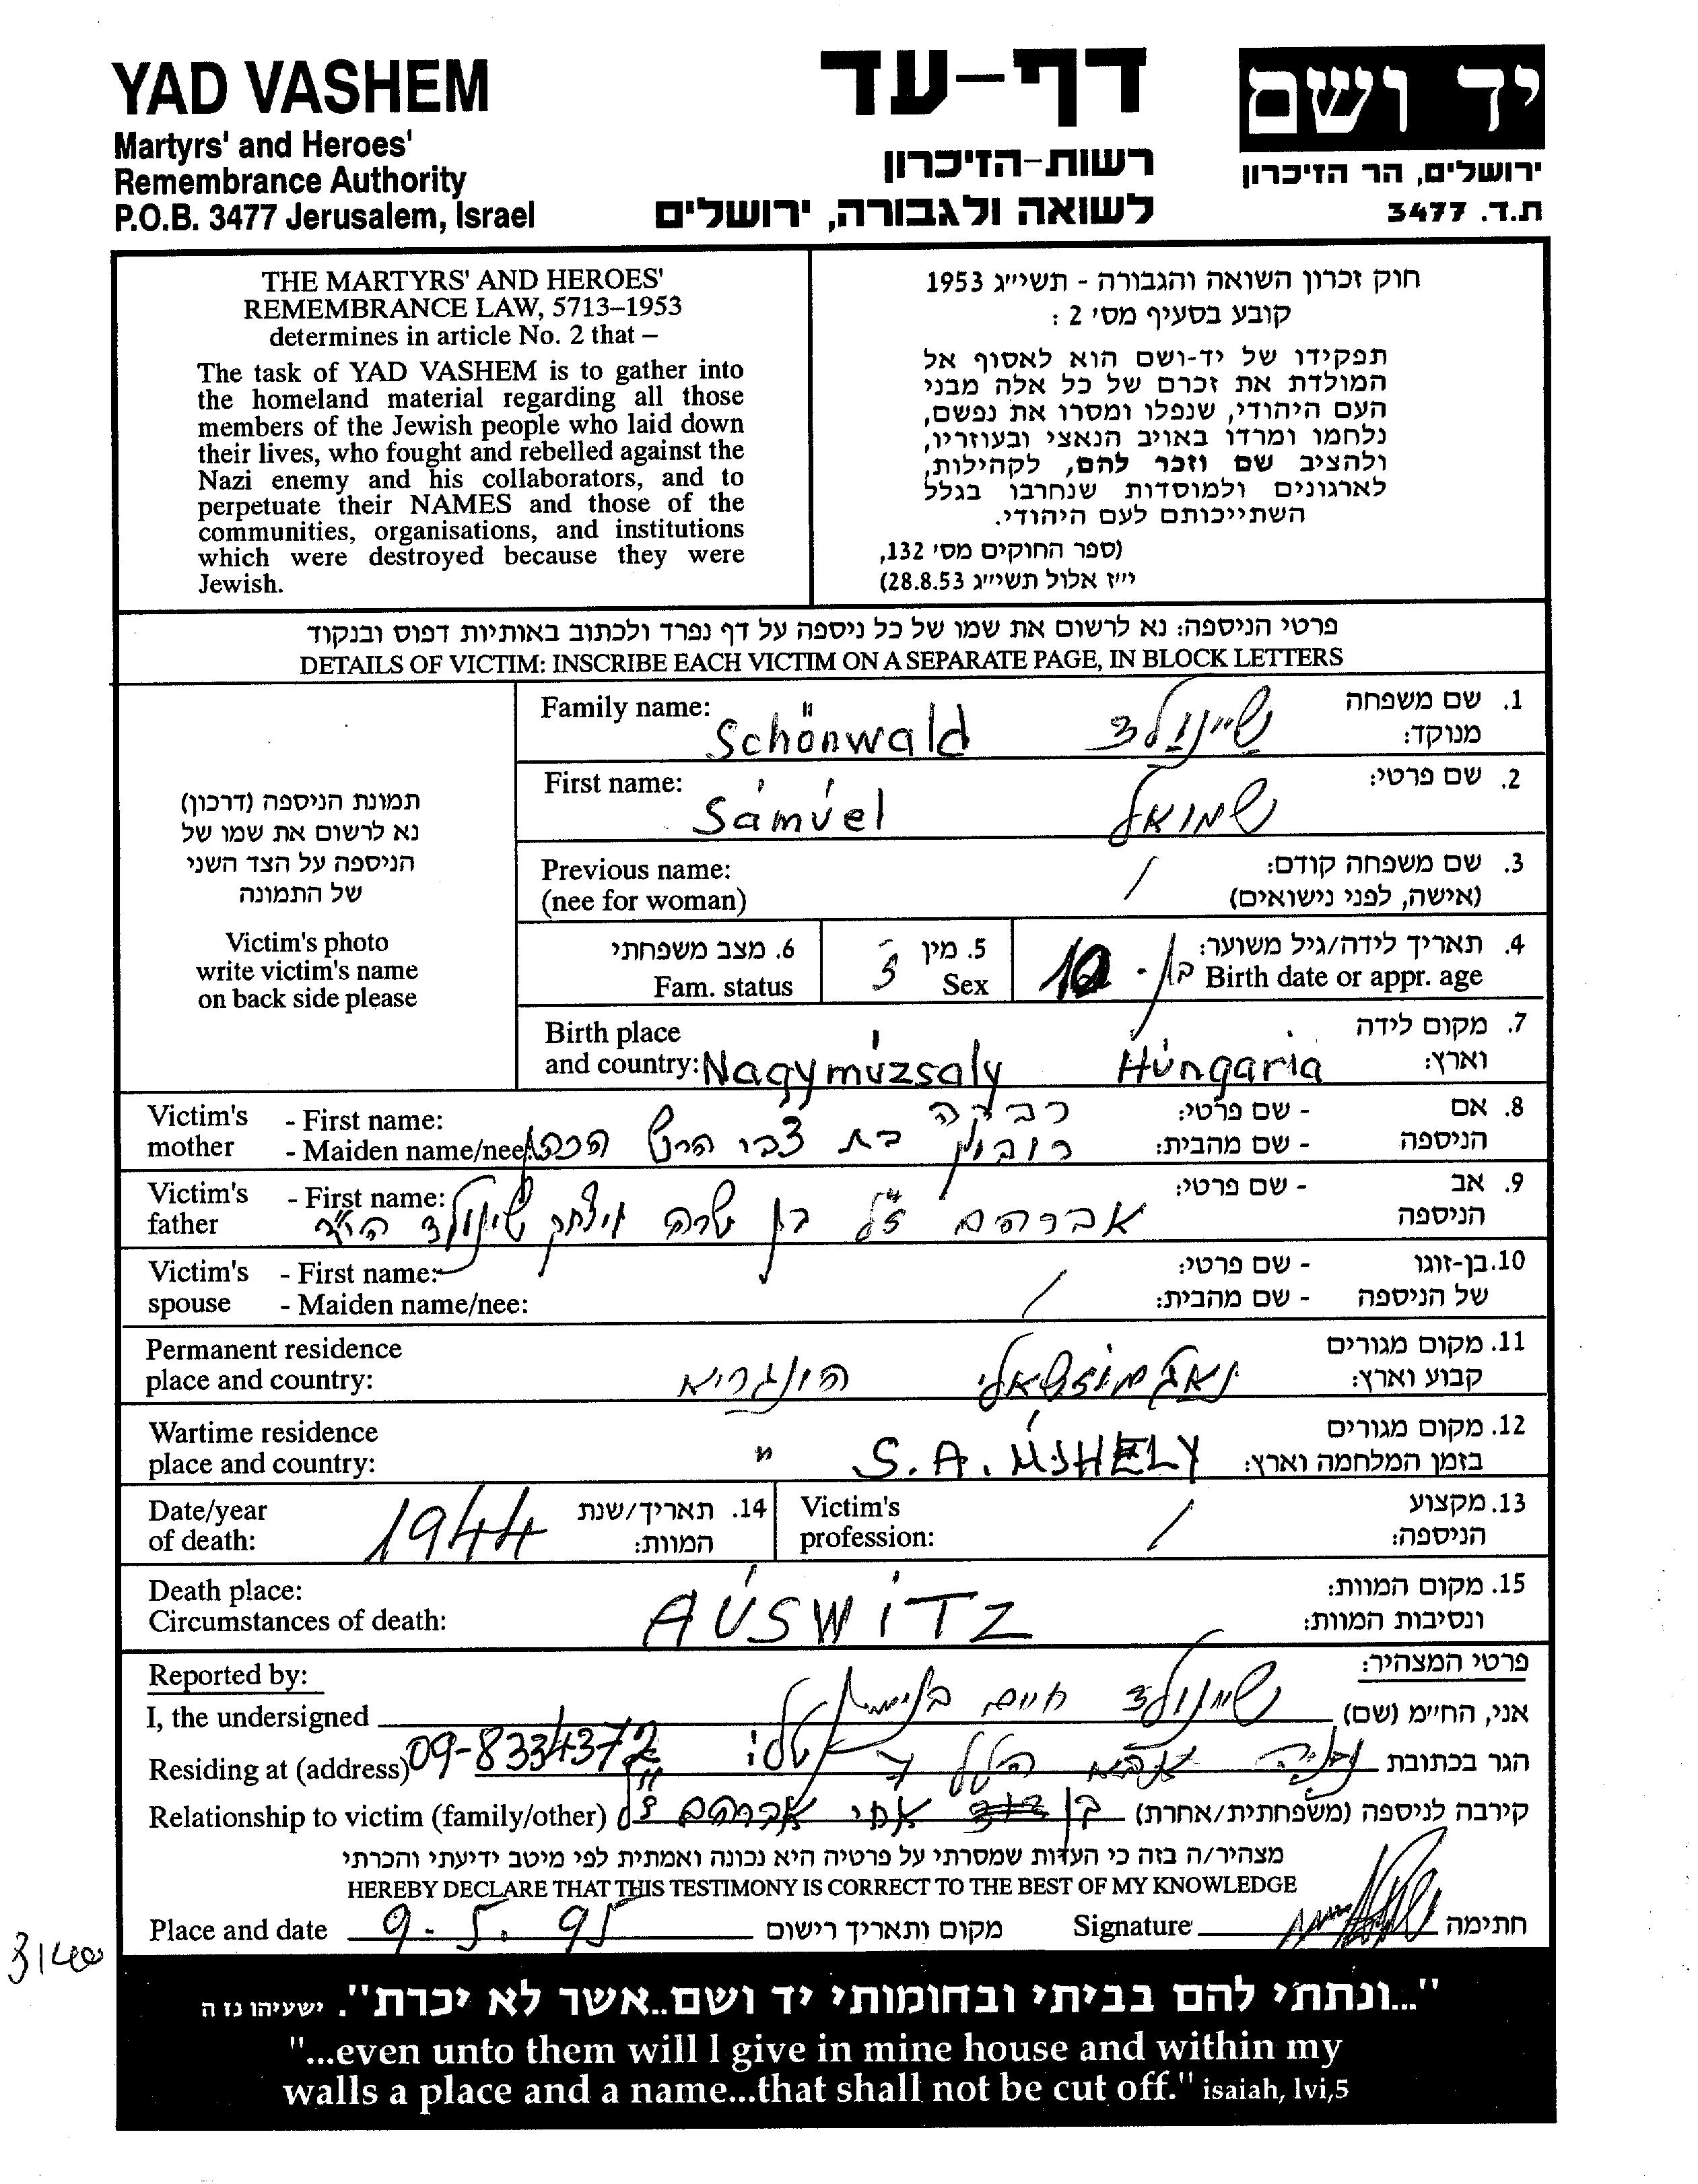 YAD VASHEM
Martyrs' and Heroes'
Remembrance Authority
P.O.B. 3477 Jerusalem, Israel
דף-עד
רשות-הזיכרון
לשואה ולגבורה, ירושלים
יד ושם
ירושלים, הר הזיכרון
ת.ד. 3477
THE MARTYRS' AND HEROES'
REMEMBRANCE LAW, 5713–1953
determines in article No. 2 that –
The task of YAD VASHEM is to gather into
the homeland material regarding all those
members of the Jewish people who laid down
their lives, who fought and rebelled against the
Nazi enemy and his collaborators, and to
perpetuate their NAMES and those of the
communities, organisations, and institutions
which were destroyed because they were
Jewish.
חוק זכרון השואה והגבורה - תשי״ג 1953
קובע בסעיף מס׳ 2 :
תפקידו של יד-ושם הוא לאסוף אל
המולדת את זכרם של כל אלה מבני
העם היהודי, שנפלו ומסרו את נפשם,
נלחמו ומרדו באויב הנאצי ובעוזריו,
ולהציב שם וזכר להם, לקהילות,
לארגונים ולמוסדות שנחרבו בגלל
השתייכותם לעם היהודי.
(ספר החוקים מס׳ 132,
י״ז אלול תשי״ג 28.8.53)
פרטי הניספה: נא לרשום את שמו של כל ניספה על דף נפרד ולכתוב באותיות דפוס ובנקוד
DETAILS OF VICTIM: INSCRIBE EACH VICTIM ON A SEPARATE PAGE, IN BLOCK LETTERS
תמונת הניספה (דרכון)
נא לרשום את שמו של
הניספה על הצד השני
של התמונה
Victim's photo
write victim's name
on back side please
Family name: Schönwald שיינולד 1. שם משפחה
מנוקד:
First name: Sámúel שמואל 2. שם פרטי:
Previous name: / 3. שם משפחה קודם:
(nee for woman) (אישה, לפני נישואים)
6. מצב משפחתי 5. מין ז 4. תאריך לידה/גיל משוער:
Fam. status Sex Birth date or appr. age בן - 10
Birth place 7. מקום לידה
and country: Nagymúzsaly Húngaria וארץ:
Victim's - First name: רבקה - שם פרטי: 8. אם
mother - Maiden name/nee: רובין בת צבי הרש - שם מהבית: הניספה
Victim's - First name: - שם פרטי: 9. אב
father אברהם ז״ל בן שרה ויצחק שיינולד הי״ד הניספה
Victim's - First name: - שם פרטי: 10. בן-זוגו
spouse - Maiden name/nee: / - שם מהבית: של הניספה
Permanent residence 11. מקום מגורים
place and country: נאגמוזשאלי הונגריא קבוע וארץ:
Wartime residence 12. מקום מגורים
place and country: S.A.ÚJHELY " בזמן המלחמה וארץ:
Date/year 1944 14. תאריך/שנת Victim's / 13. מקצוע
of death: המוות: profession: הניספה:
Death place: AÚSWITZ 15. מקום המוות:
Circumstances of death: ונסיבות המוות:
Reported by: פרטי המצהיר:
I, the undersigned שיינולד חיים בנימין אני, הח״מ (שם)
Residing at (address) נתניה אבא הלל 7 טל: 09-8334372 הגר בכתובת
Relationship to victim (family/other) בן אחי אברהם ז״ל קירבה לניספה (משפחתית/אחרת)
מצהיר/ה בזה כי העדות שמסרתי על פרטיה היא נכונה ואמתית לפי מיטב ידיעתי והכרתי
HEREBY DECLARE THAT THIS TESTIMONY IS CORRECT TO THE BEST OF MY KNOWLEDGE
Place and date 9-5.95 מקום ותאריך רישום Signature חתימה
"...ונתתי להם בביתי ובחומותי יד ושם..אשר לא יכרת". ישעיהו נז ה
"...even unto them will I give in mine house and within my
walls a place and a name...that shall not be cut off." isaiah, lvi,5